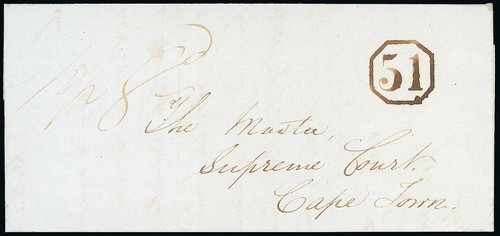 51
The Master,
Supreme Court.
Cape Town.